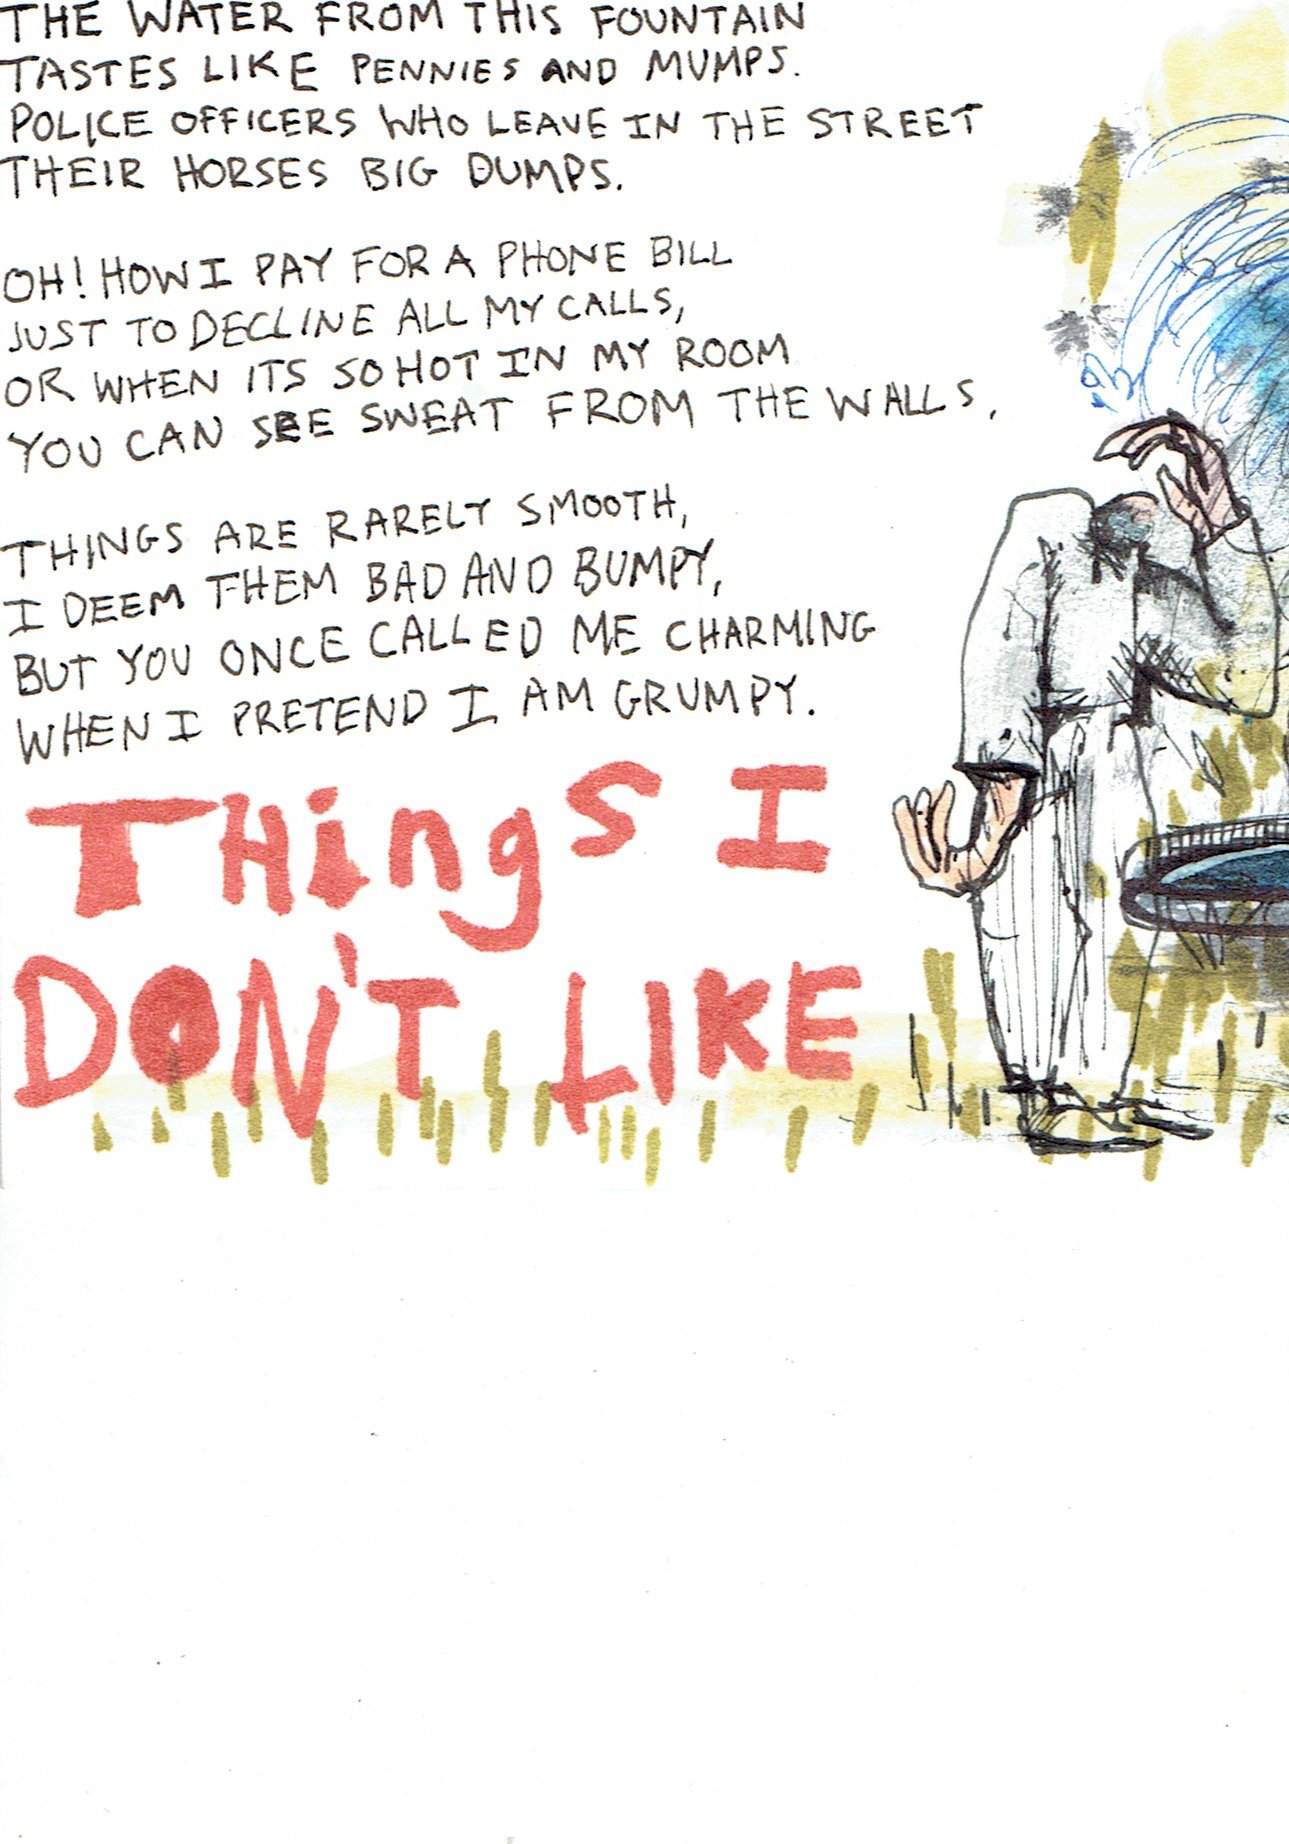 THE WATER FROM THIS FOUNTAIN
TASTES LIKE PENNIES AND MUMPS.
POLICE OFFICERS WHO LEAVE IN THE STREET
THEIR HORSES BIG DUMPS.
OH! HOW I PAY FOR A PHONE BILL
JUST TO DECLINE ALL MY CALLS,
OR WHEN ITS SO HOT IN MY ROOM
YOU CAN SEE SWEAT FROM THE WALLS.
THINGS ARE RARELY SMOOTH,
I DEEM THEM BAD AND BUMPY,
BUT YOU ONCE CALLED ME CHARMING
WHEN I PRETEND I AM GRUMPY.
THingS I
DON'T LIKE